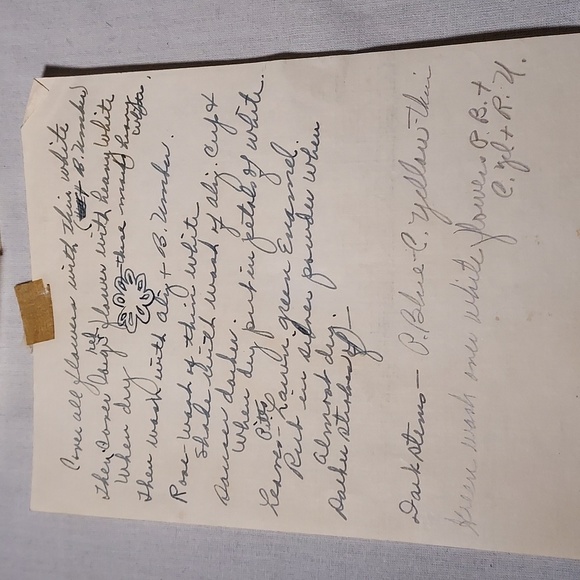 Cover all flowers with thin white
+ B. Umber
then cover large flower with heavy white
When dry these made heavy white.
Then wash with aliz + B. Umber.
Rose - Wash of thin white
Shade with wash of aliz. Crys
Sauce darker.
When dry put in petals of white.
Leaves - green Enamel
Rub in silver powder when
almost dry.
Darker
Dark stems - P. Blue - C. yellow - thin
Green wash over white flowers P.B. +
C. yel + R. U.